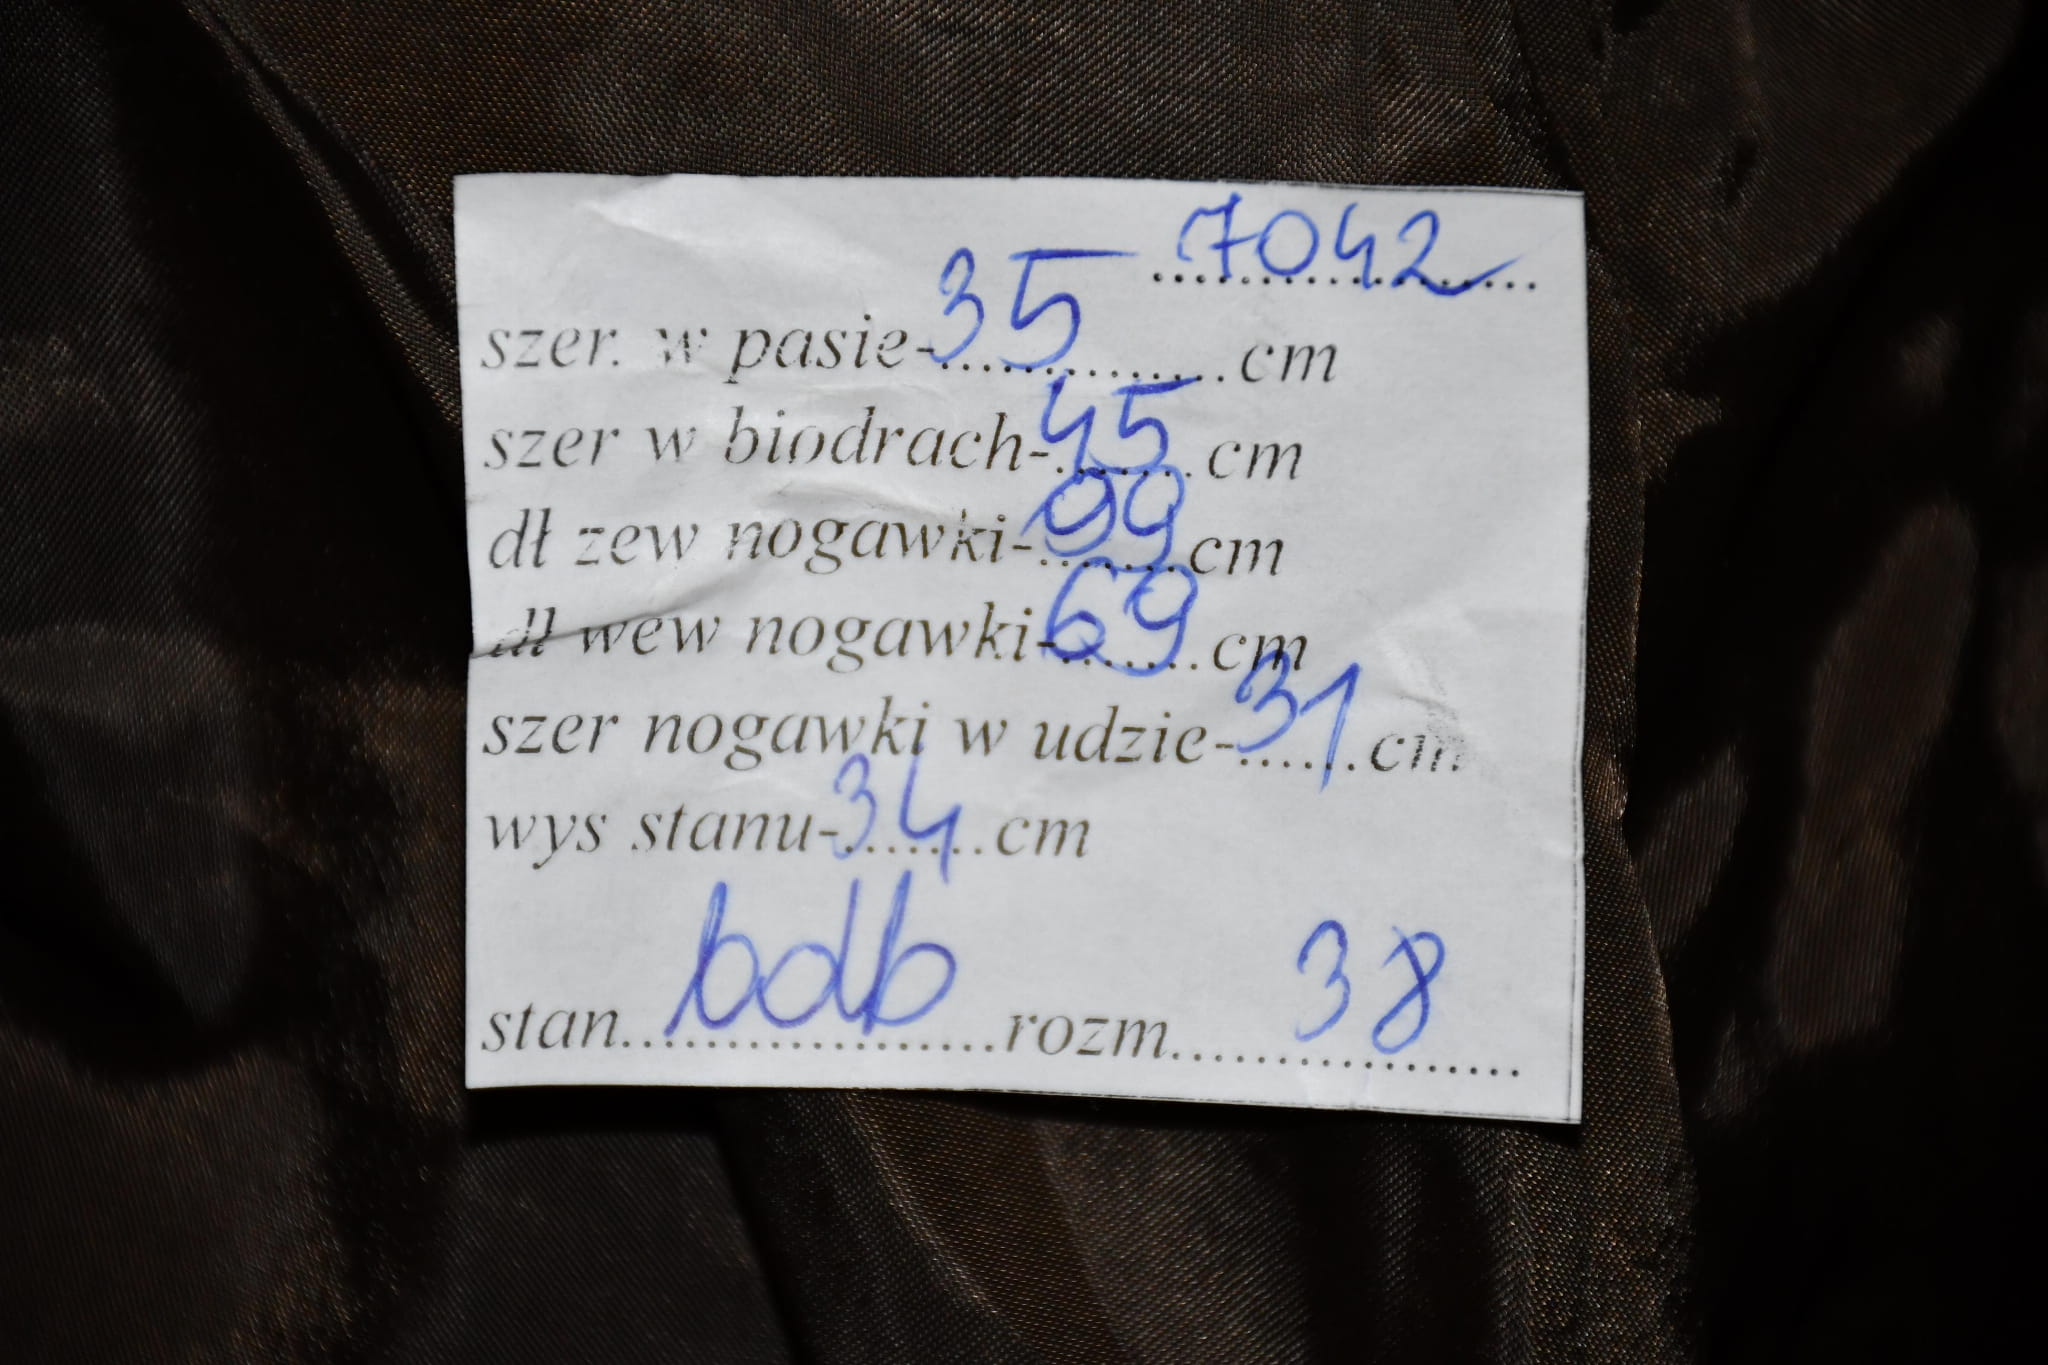 7042
szer. w pasie-35 cm
szer w biodrach-45 cm
dł zew nogawki-99 cm
dł wew nogawki-69 cm
szer nogawki w udzie-31 cm
wys stanu-34 cm
stan bdb rozm 38